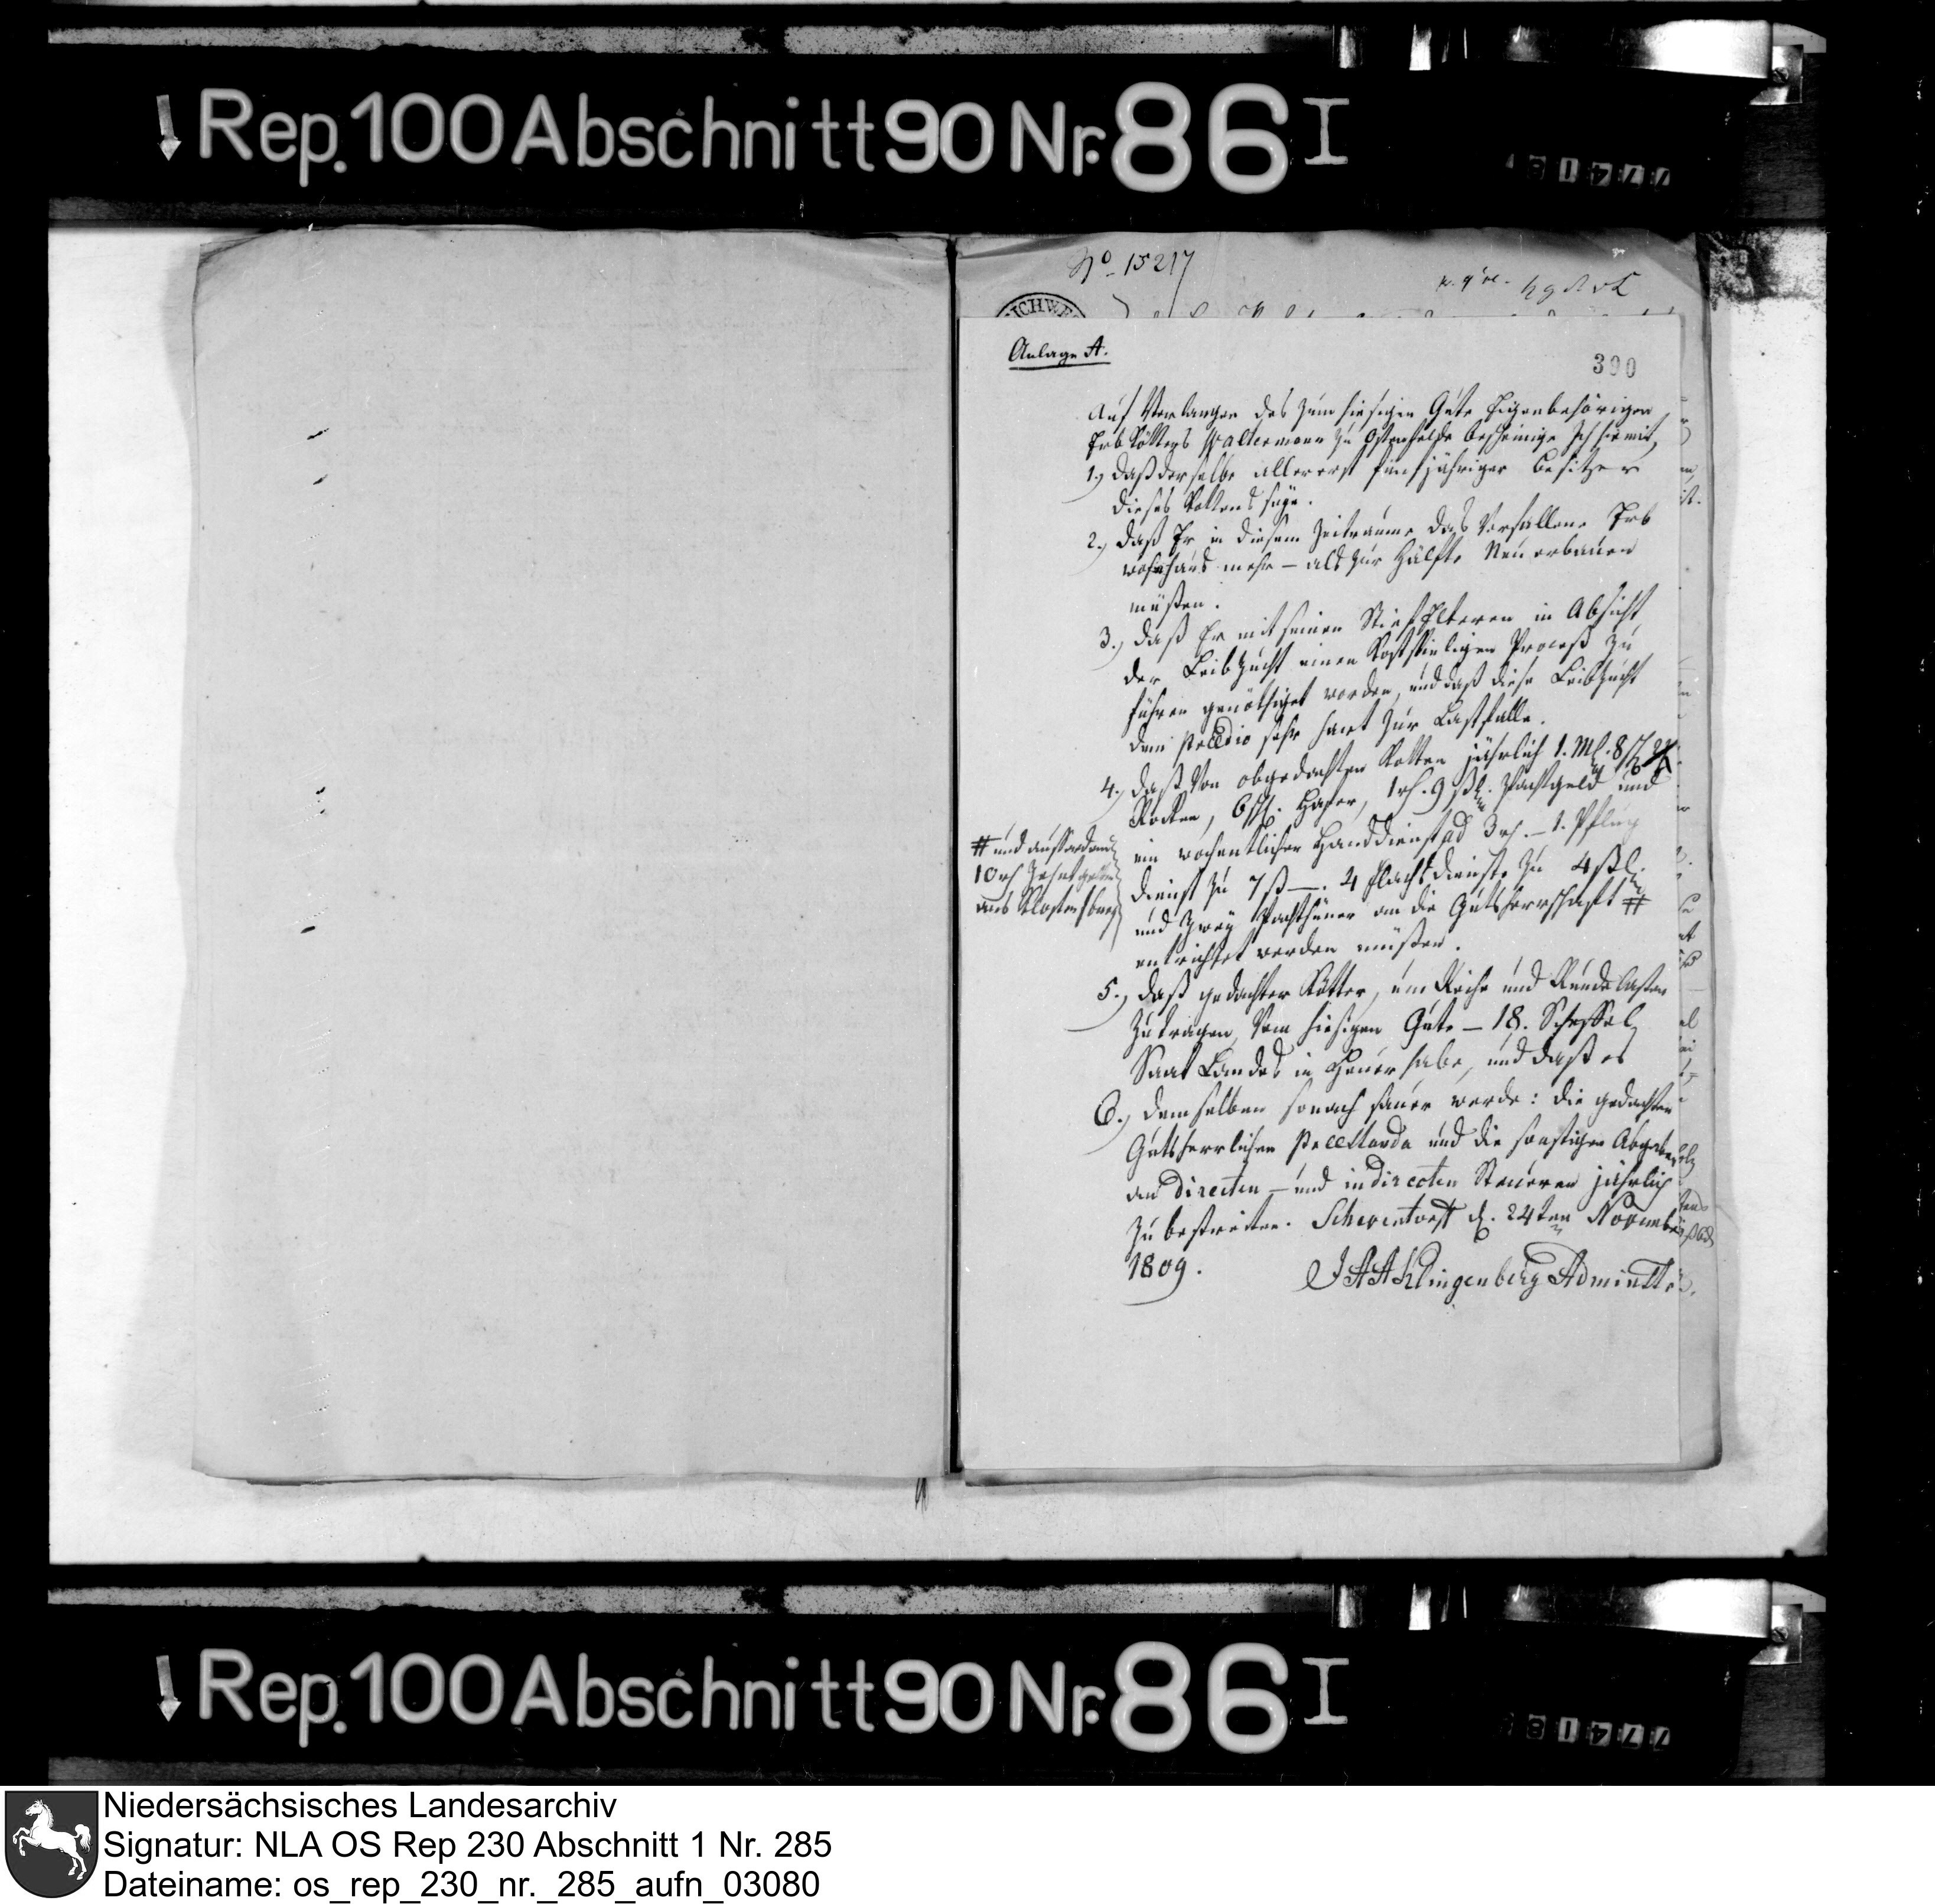 Rep. 100 Abschnitt 90 Nr. 86 I
No 15217
Anlage A.
390
Auf Verlangen des zum hiesigen Gute Eigenbehörigen
Erb Kötters Waltermann zu Ostenfelde bescheinige Ich hiemit,
1.) daß derselbe allererst fünfjähriger Besitzer
dieses Kottens seye.
2.) daß Er in diesem Zeitraume das Verfallene Erb
wohnhaus mehr – als zur Hälfte Neu erbauen
müßen.
3.) daß Er mit seinen Stief Elteren in Absicht
der Leibzucht einen Kostspieligen Proceß zu
führen genöthiget worden, und daß diese Leibzucht
dem praedio sehr hart zur Last falle.
4.) daß Von obgedachten Kotten jährlich 1. Ml. 8
Rocken, 6 Haber, 1 rh. 9 ßl. Pachtgeld und
ein wochentlicher Handdienst ad 3 rh. – 1. Pflug
dienst zu 7 ß –. 4 Flachsdienste zu 4 ßl.
und zwey Pachthüner an die Gutsherrschaft #
entrichtet werden müßen.
# und ausserdem
10 rh Zehntgeld
ans Kloster
5.) daß gedachter Kötter, um Reihe und Runde lasten
zu tragen, Vom hiesigen Gute – 18. Scheffel
Saat Landes in Heuer habe, und daß es
6.) demselben sonach sauer werde: die gedachten
Gutsherrlichen Praestanda und die sonstigen Abgaben
an directen – und indirecten Steueren jährlich
zu bestreiten. Scheventorff d. 24ten November
1809.
JAAKlingenberg Adminstr.
Rep. 100 Abschnitt 90 Nr. 86 I
Niedersächsisches Landesarchiv
Signatur: NLA OS Rep 230 Abschnitt 1 Nr. 285
Dateiname: os_rep_230_nr._285_aufn_03080